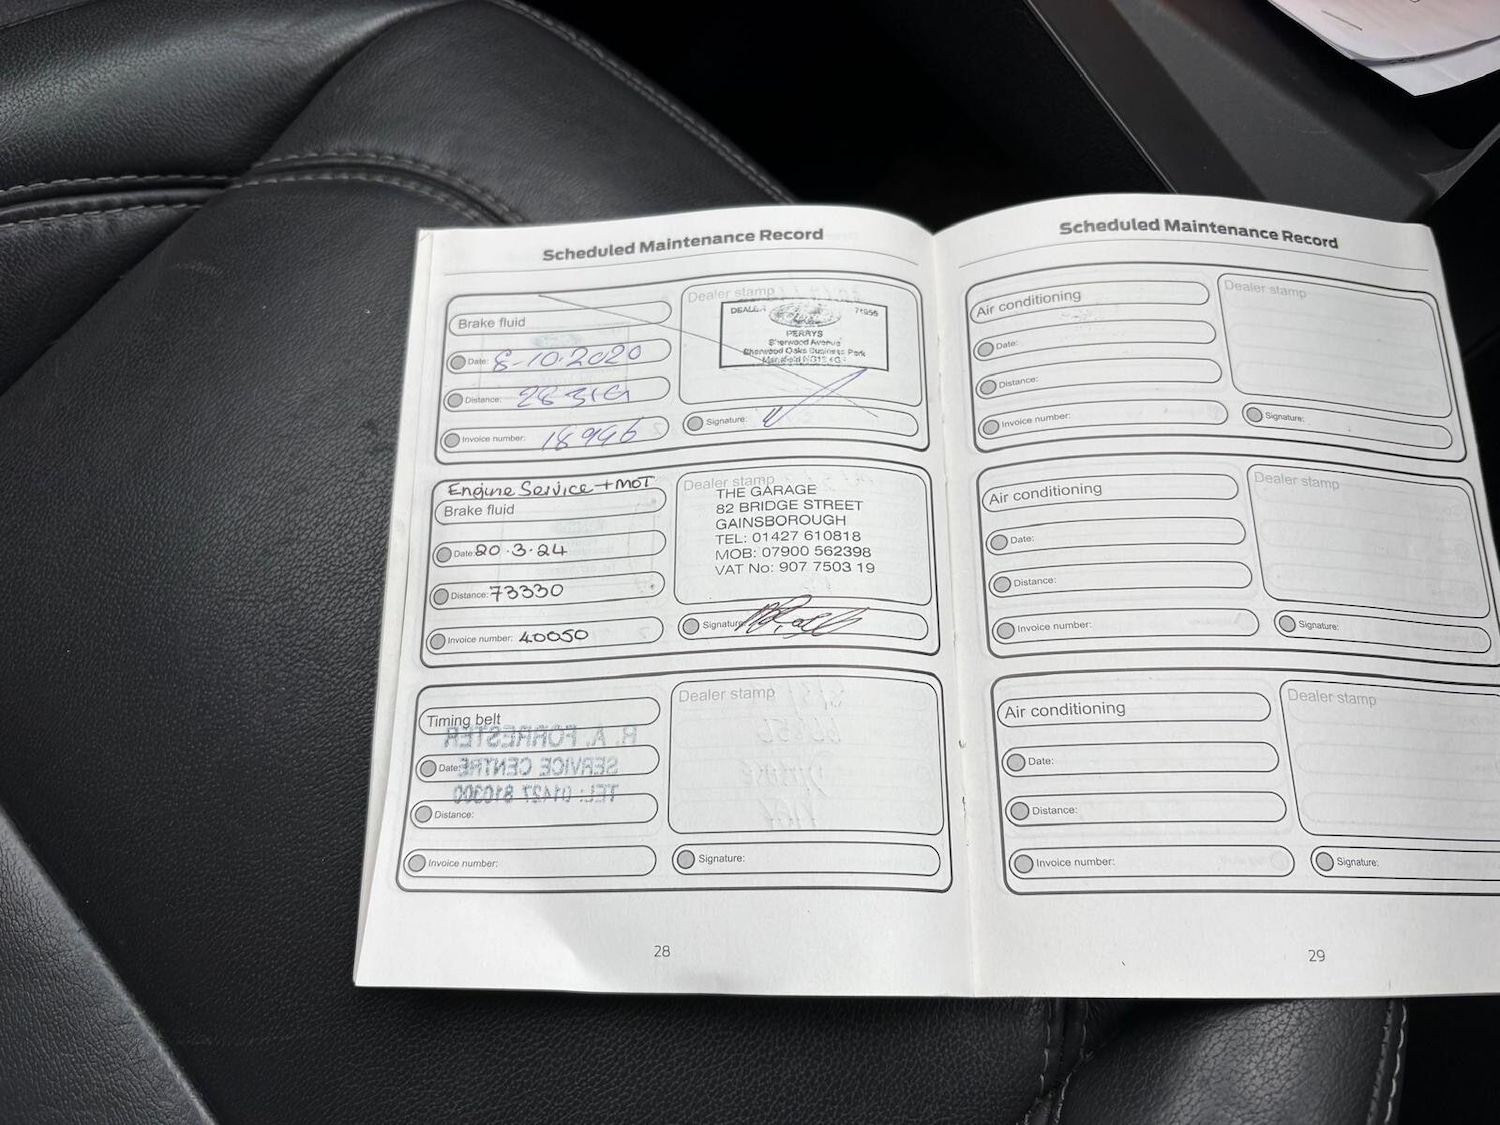 Scheduled Maintenance Record
Brake fluid
Date: 8-10-2020
Distance:
Invoice number: 18946
Dealer stamp
71956
PERRYS
Sherwood Avenue
Sherwood Oaks Business Park
Signature:
Engine Service + MOT
Brake fluid
Date: 20.3.24
Distance: 73330
Invoice number: 40050
Dealer stamp
THE GARAGE
82 BRIDGE STREET
GAINSBOROUGH
TEL: 01427 610818
MOB: 07900 562398
VAT No: 907 7503 19
Signature:
Timing belt
R. A. FORRESTER
Date:
SERVICE CENTRE
TEL: 01427 810300
Distance:
Invoice number:
Dealer stamp
Signature:
28
Scheduled Maintenance Record
Air conditioning
Date:
Distance:
Invoice number:
Dealer stamp
Signature:
Air conditioning
Date:
Distance:
Invoice number:
Dealer stamp
Signature:
Air conditioning
Date:
Distance:
Invoice number:
Dealer stamp
Signature:
29